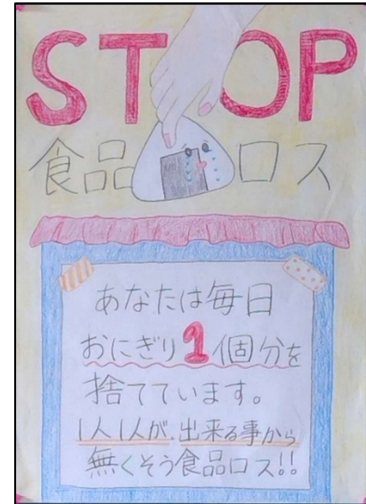 STOP
食品ロス
あなたは毎日
おにぎり1個分を
捨てています。
1人1人が、出来る事から
無くそう食品ロス!!